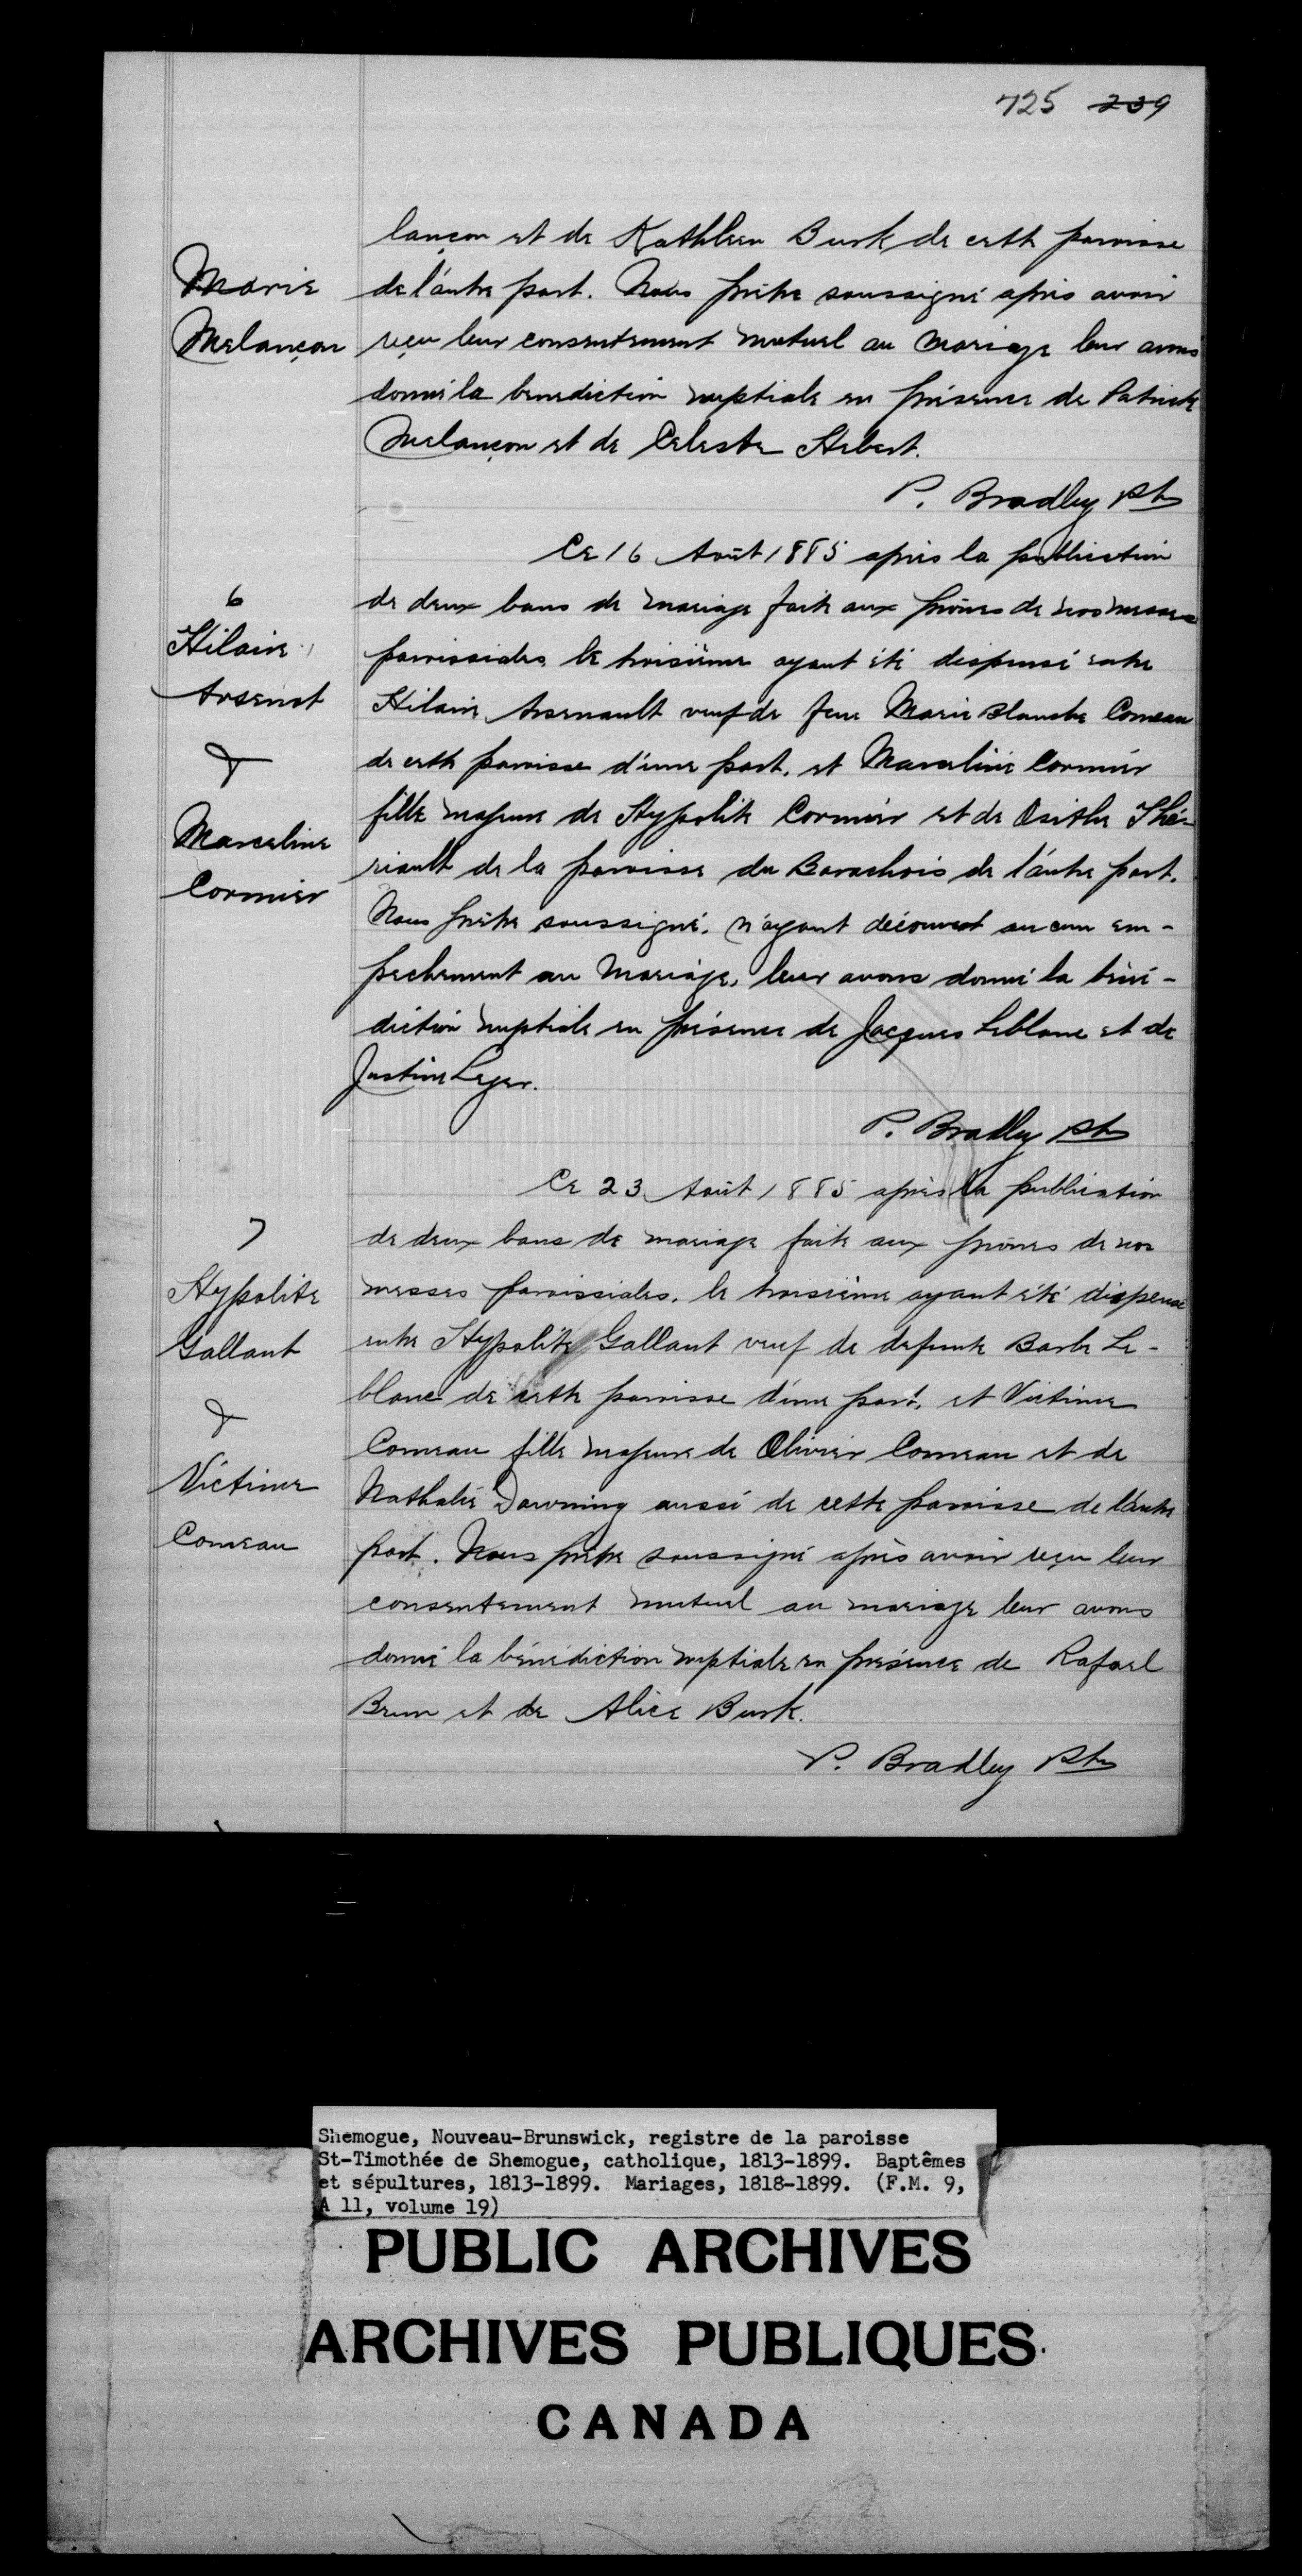 725 239
lançon et de Kathleen Burk de cette paroisse
Marie
de l'autre part. Nous prêtre soussigné après avoir
Melançon
reçu leur consentement mutuel au mariage leur avons
donné la benediction nuptiale en présence de Patrick
Melançon et de Celeste Hebert.
P. Bradley Ptre
Ce 16 Août 1885 après la publication
6
de deux bans de mariage faite aux prônes de nos messes
Hilaire
paroissiales le troisième ayant été dispensé entre
Arsenot
Hilaire Arsenault veuf de feue Marie Blanche Comeau
&
de cette paroisse d'une part. et Marceline Cormier
Marceline
fille majeure de Hypolite Cormier et de Osithe Thé-
Cormier
riault de la paroisse du Barachois de l'autre part.
Nous prêtre soussigné. n'ayant découvert aucun em-
pechement au mariage, leur avons donné la béné-
diction nuptiale en présence de Jacques Leblanc et de
Justine Leger.
P. Bradley Ptre
Ce 23 Août 1885 après la publication
7
de deux bans de mariage faite aux prônes de nos
Hypolite
messes paroissiales. le troisième ayant été dispensé
Gallant
entre Hypolite Gallant veuf de defunte Barbe Le-
&
blanc de cette paroisse d'une part, et Victime
Victime
Comeau fille majeure de Olivier Comeau et de
Comeau
Nathalie Downing aussi de cette paroisse de l'autre
part. Nous prêtre soussigné après avoir reçu leur
consentement mutuel au mariage leur avons
donné la bénédiction nuptiale en présence de Rafael
Brun et de Alice Burk.
P. Bradley Ptre
Shemogue, Nouveau-Brunswick, registre de la paroisse
St-Timothée de Shemogue, catholique, 1813-1899. Baptêmes
et sépultures, 1813-1899. Mariages, 1818-1899. (F.M. 9,
A 11, volume 19)
PUBLIC ARCHIVES
ARCHIVES PUBLIQUES
CANADA